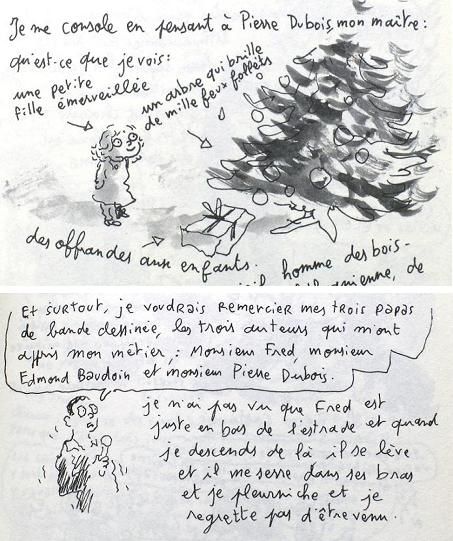 Je me console en pensant à Pierre Dubois, mon maître :
qu'est-ce que je vois :
une petite
fille émerveillée
un arbre qui brille
de mille feux follets
des offrandes aux enfants.
homme des bois-
de
Et surtout, je voudrais remercier mes trois papas
de bande dessinée, les trois auteurs qui m'ont
appris mon métier : Monsieur Fred, monsieur
Edmond Baudoin et monsieur Pierre Dubois.
je n'ai pas vu que Fred est
juste en bas de l'estrade et quand
je descends de là il se lève
et il me serre dans ses bras
et je pleurniche et je
regrette pas d'être venu.